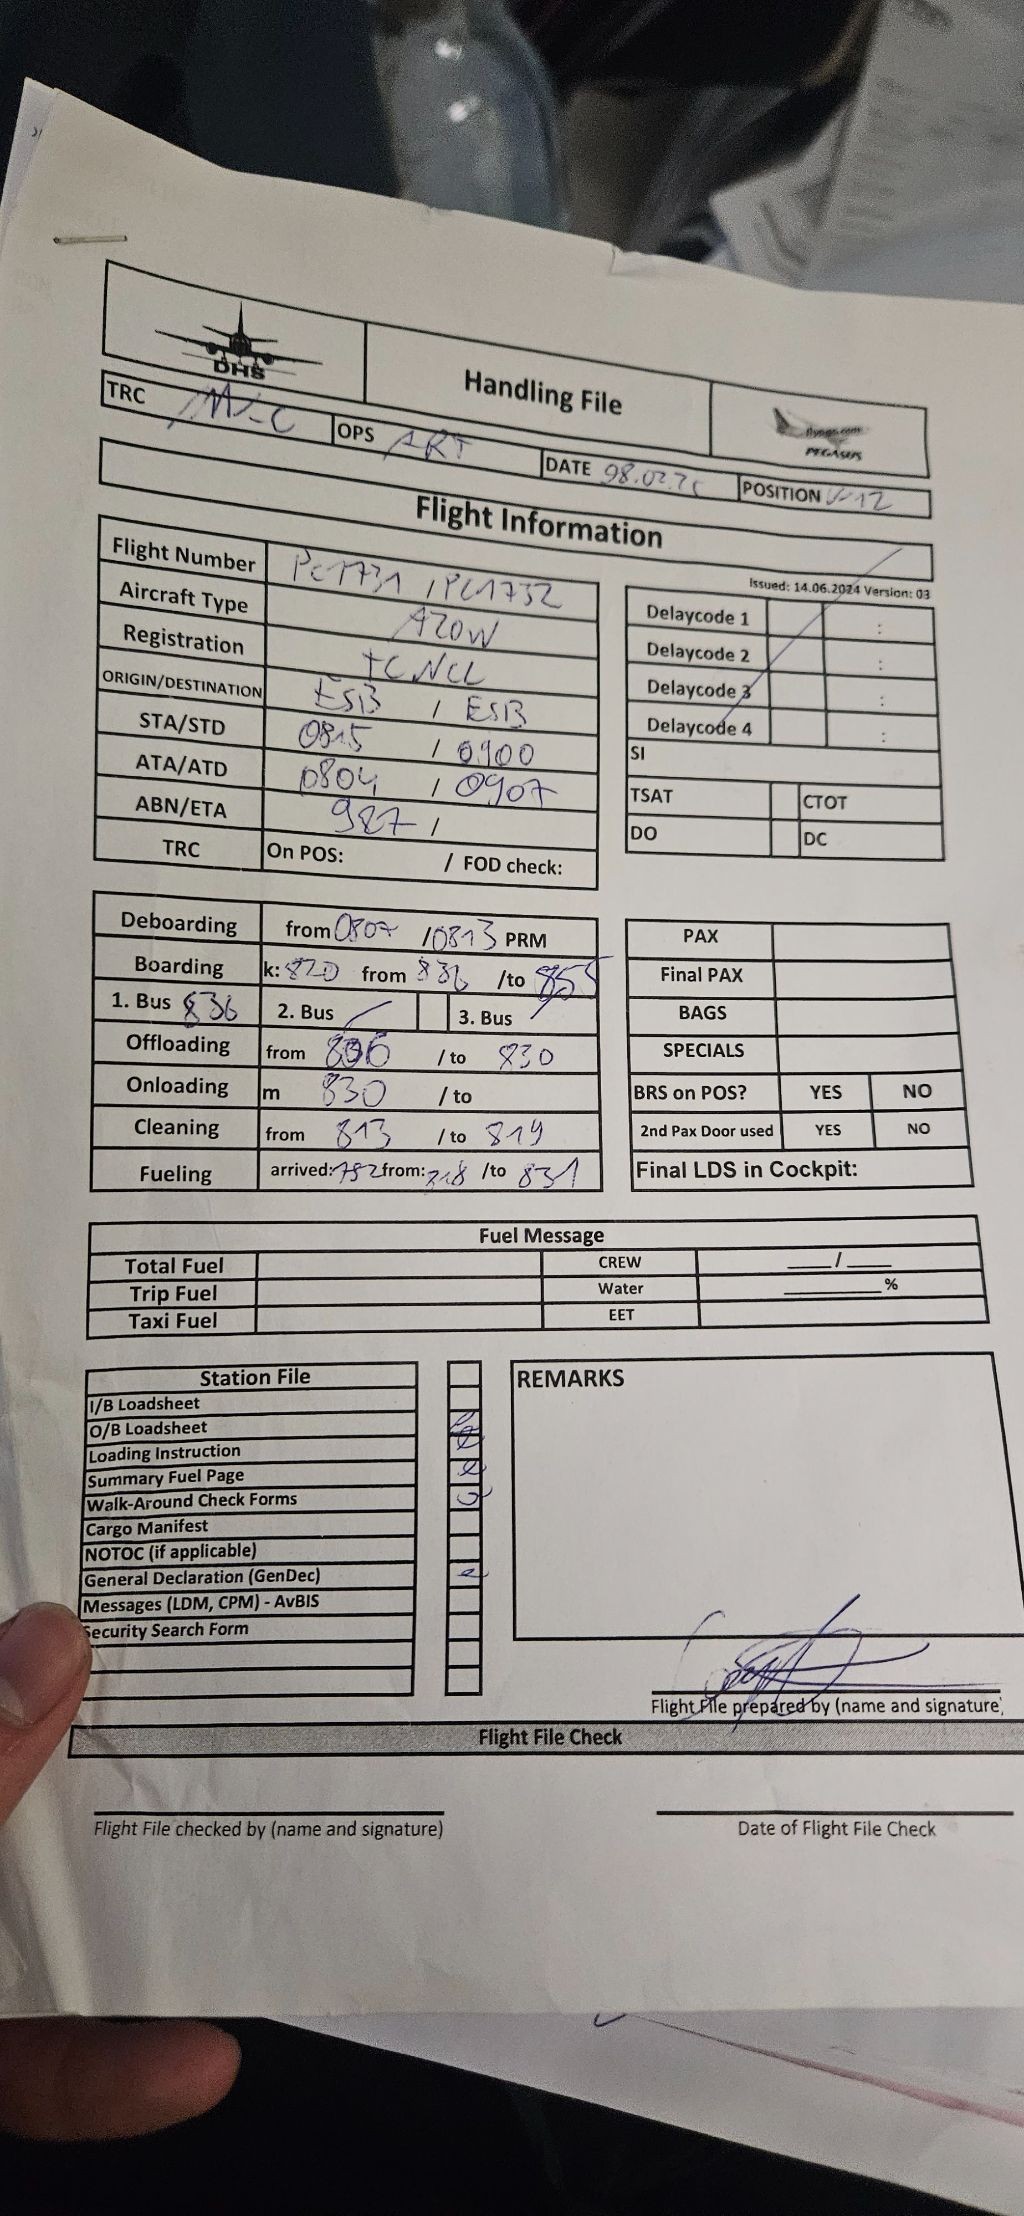 DHS
Handling File
flypgs.com
PEGASUS
TRC
OPS ART
DATE
POSITION
Flight Information
Issued: 14.06.2024 Version: 03
Flight Number PC1731 / PC1732
Aircraft Type A20W
Registration TCNCL
ORIGIN/DESTINATION ESB / ESB
STA/STD 0815 / 0900
ATA/ATD 0804 / 0907
ABN/ETA 987 /
TRC On POS: / FOD check:
Delaycode 1 :
Delaycode 2 :
Delaycode 3 :
Delaycode 4 :
SI
TSAT CTOT
DO DC
Deboarding from 0807 /0813 PRM
Boarding k: 820 from 836 /to 855
1. Bus 836 2. Bus 3. Bus
Offloading from / to 830
Onloading m 830 / to
Cleaning from 813 / to 819
Fueling arrived: 752 from: 818 /to 831
PAX
Final PAX
BAGS
SPECIALS
BRS on POS? YES NO
2nd Pax Door used YES NO
Final LDS in Cockpit:
Fuel Message
Total Fuel CREW ____/____
Trip Fuel Water ________%
Taxi Fuel EET
Station File
I/B Loadsheet
O/B Loadsheet
Loading Instruction
Summary Fuel Page
Walk-Around Check Forms
Cargo Manifest
NOTOC (if applicable)
General Declaration (GenDec)
Messages (LDM, CPM) - AvBIS
Security Search Form
REMARKS
Flight File prepared by (name and signature)
Flight File Check
Flight File checked by (name and signature)
Date of Flight File Check